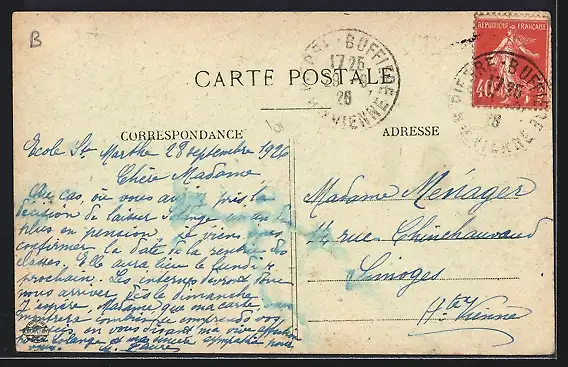 B
CARTE POSTALE
PIERRE-BUFFIERE
17 25
28
26
Hte VIENNE
REPUBLIQUE FRANÇAISE
40c
PIERRE-BUFFIERE
17 25
26
Hte VIENNE
CORRESPONDANCE
ADRESSE
Ecole Ste Marthe 28 septembre 1926
Chère Madame
Au cas, où vous auriez pris la
décision de laisser Solange un an de
plus en pension, je viens vous
confirmer la date de la rentrée des
classes. Elle aura lieu le lundi
prochain. Les internes devront donc
nous arriver dès le dimanche
J'espère, Madame que ma carte
vous
en vous disant ma vive affection
pour Solange et ma sincère sympathie pour
vous.
Madame Ménager
14 rue Chinchauvaud
Limoges
Hte Vienne